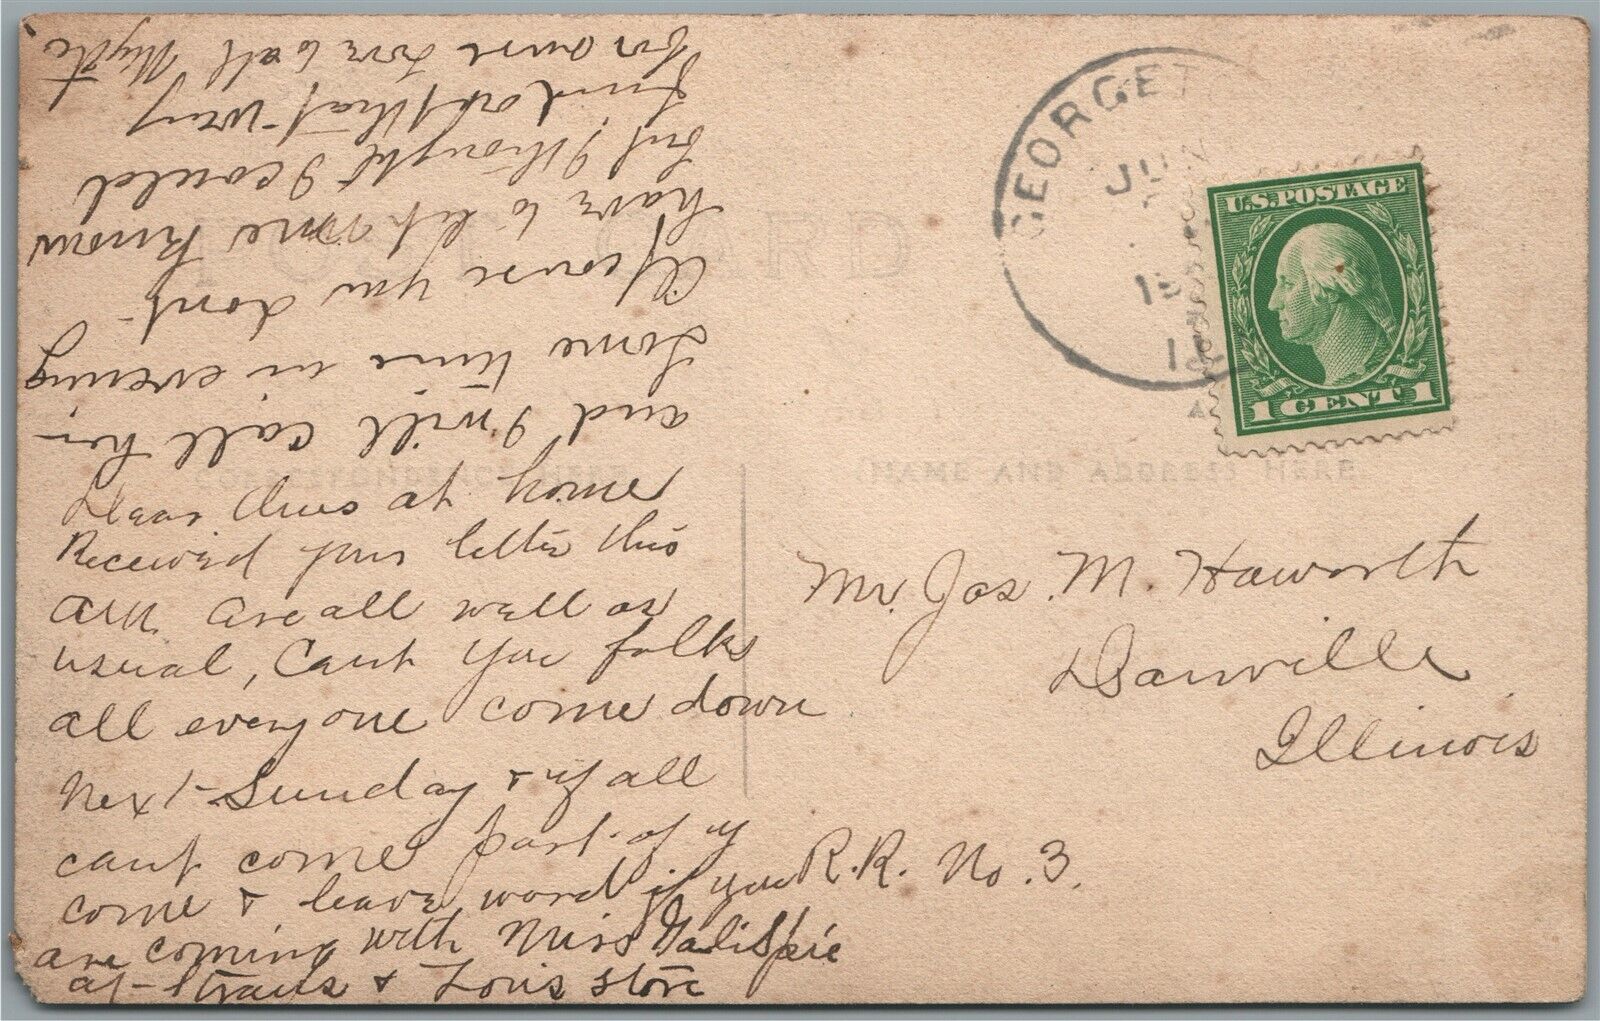 Dear Ones at home
Received your letter this
are all well as
usual, Cant you folks
all everyone come down
next Sunday & if all
cant come part of y
come & leave word if you
are coming with Miss Galispie
at Straus & Louis store
and I will call her
some time in evening
Of course you dont
have to let me know
but I thought I could
find out that way
for sure Love to all Myrtle
POST CARD
CORRESPONDENCE HERE
NAME AND ADDRESS HERE
GEORGET
JUN
U.S. POSTAGE
1 CENT 1
Mr. Jos. M. Haworth
Danville
Illinois
R.R. No. 3.